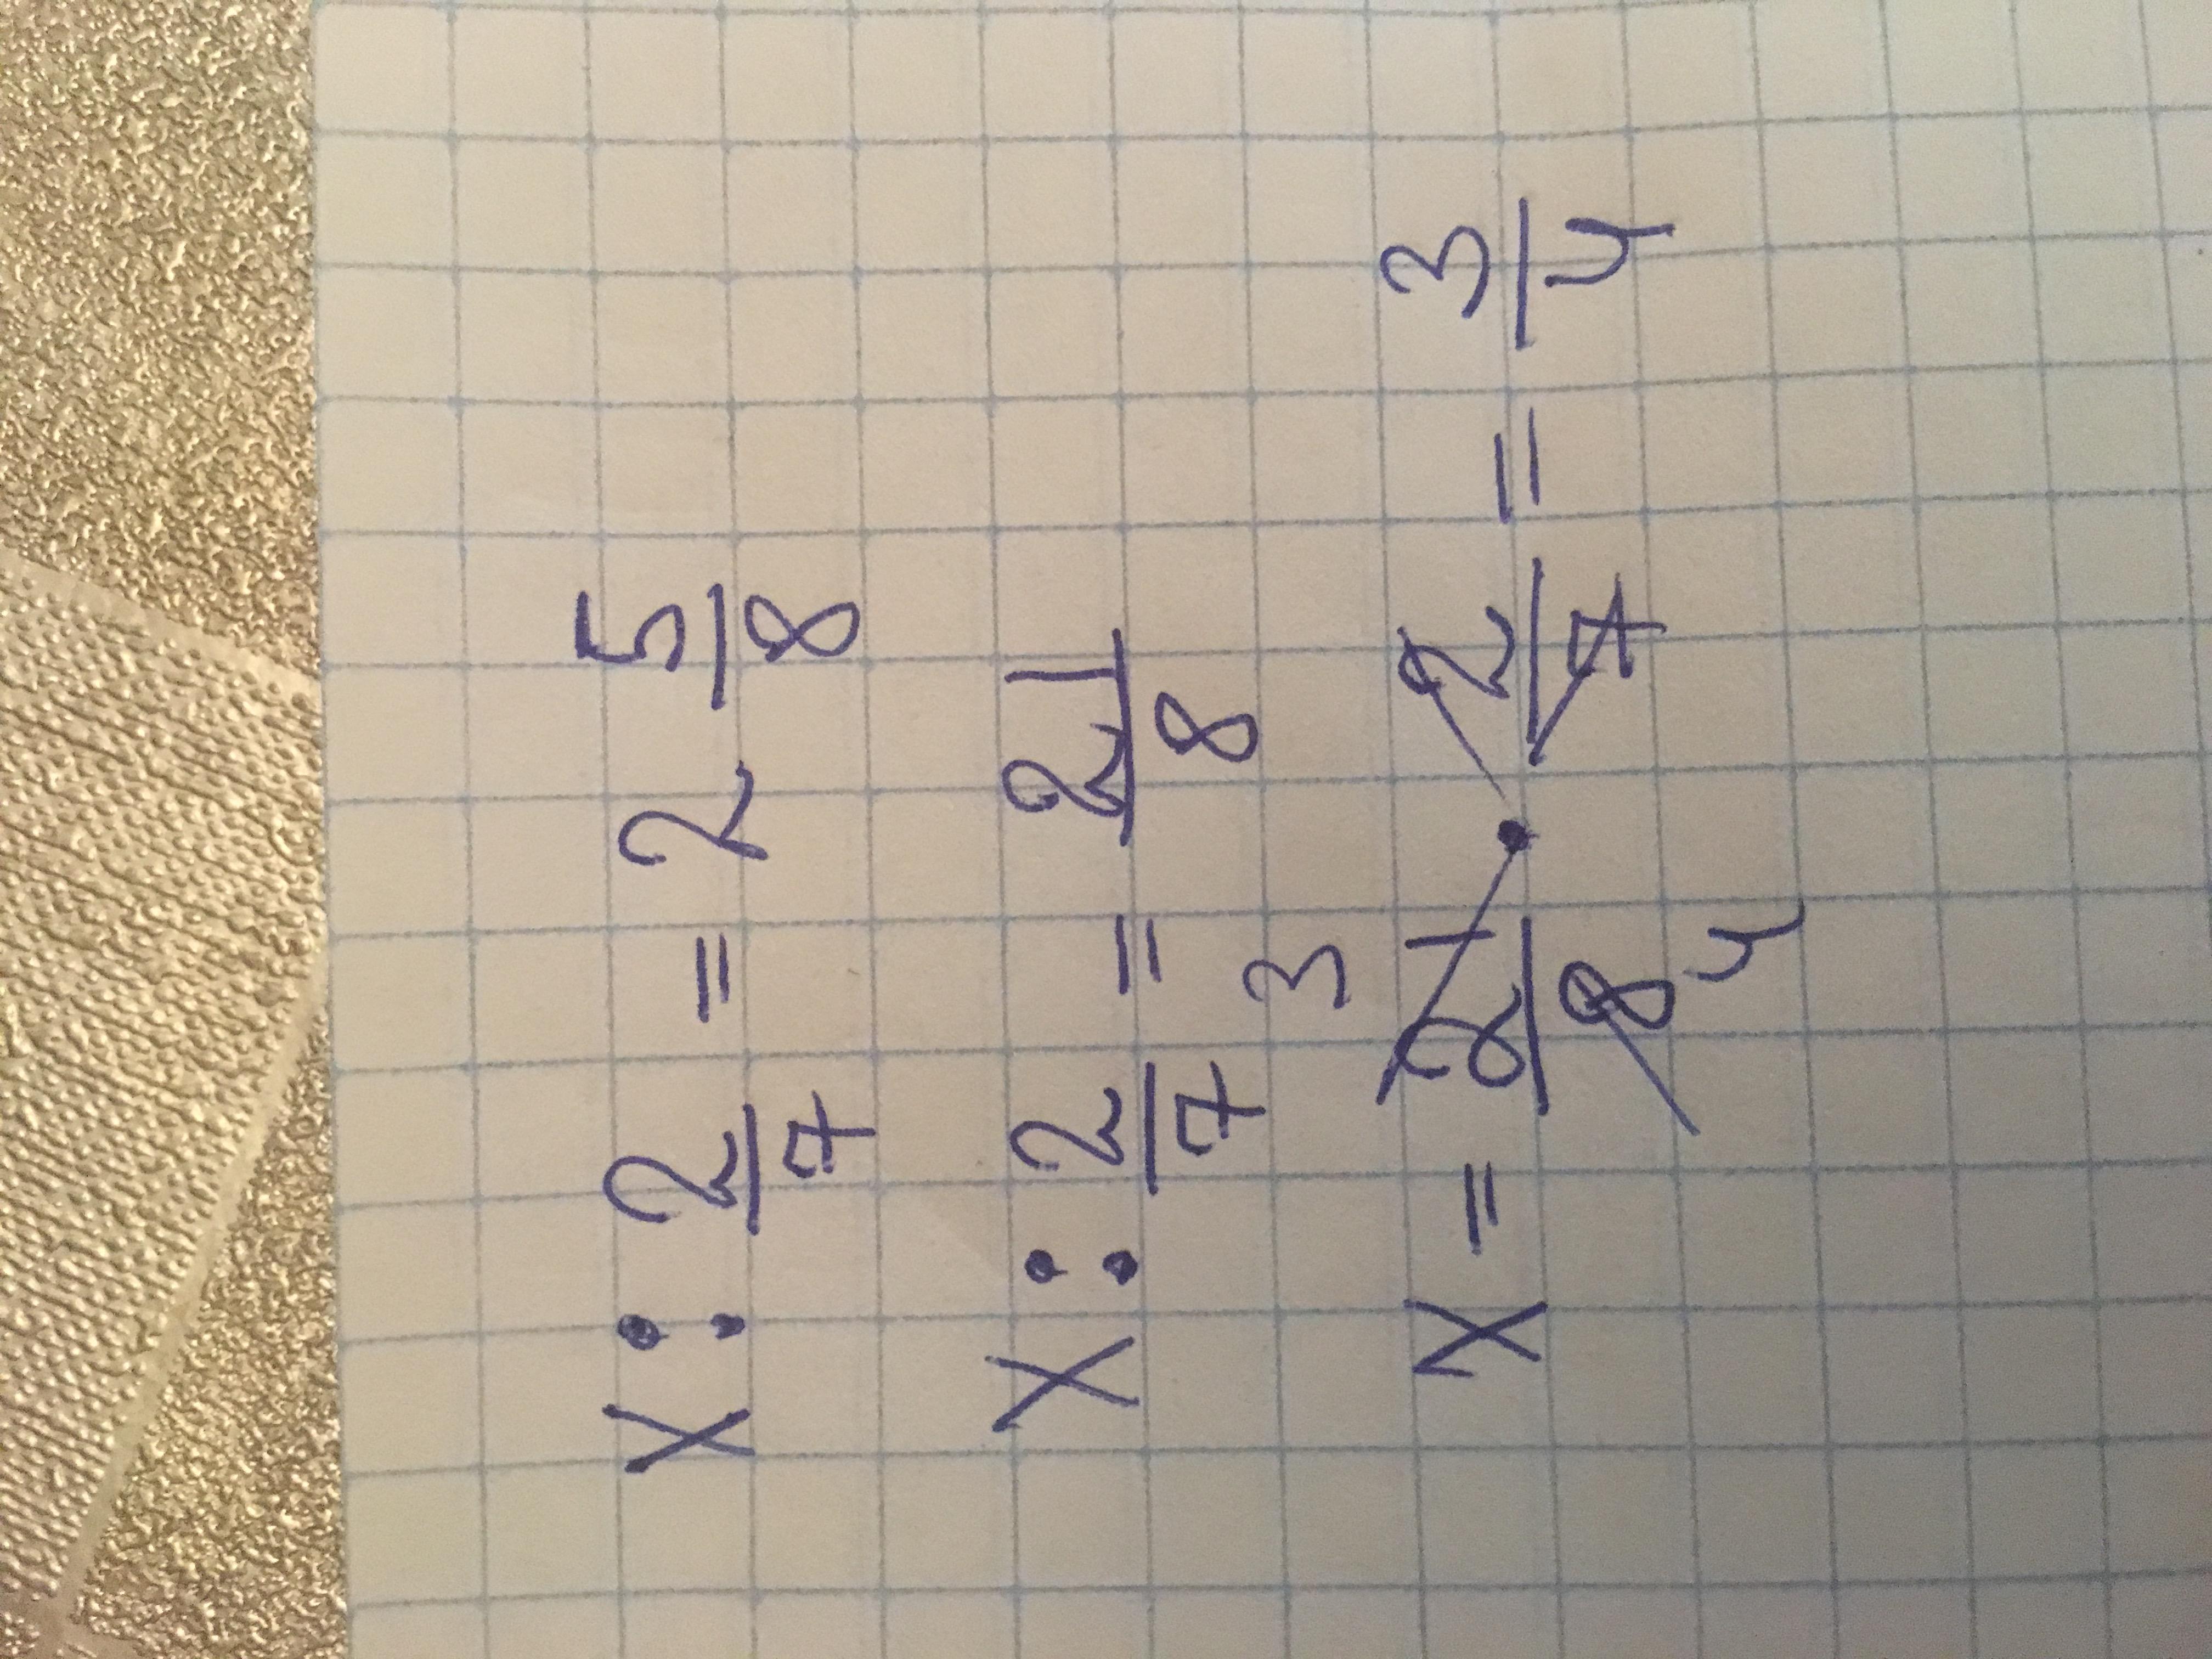 X : 2/7 = 2 5/8
X : 2/7 = 21/8
X = 21/8 · 2/7 = 3/4
3 4